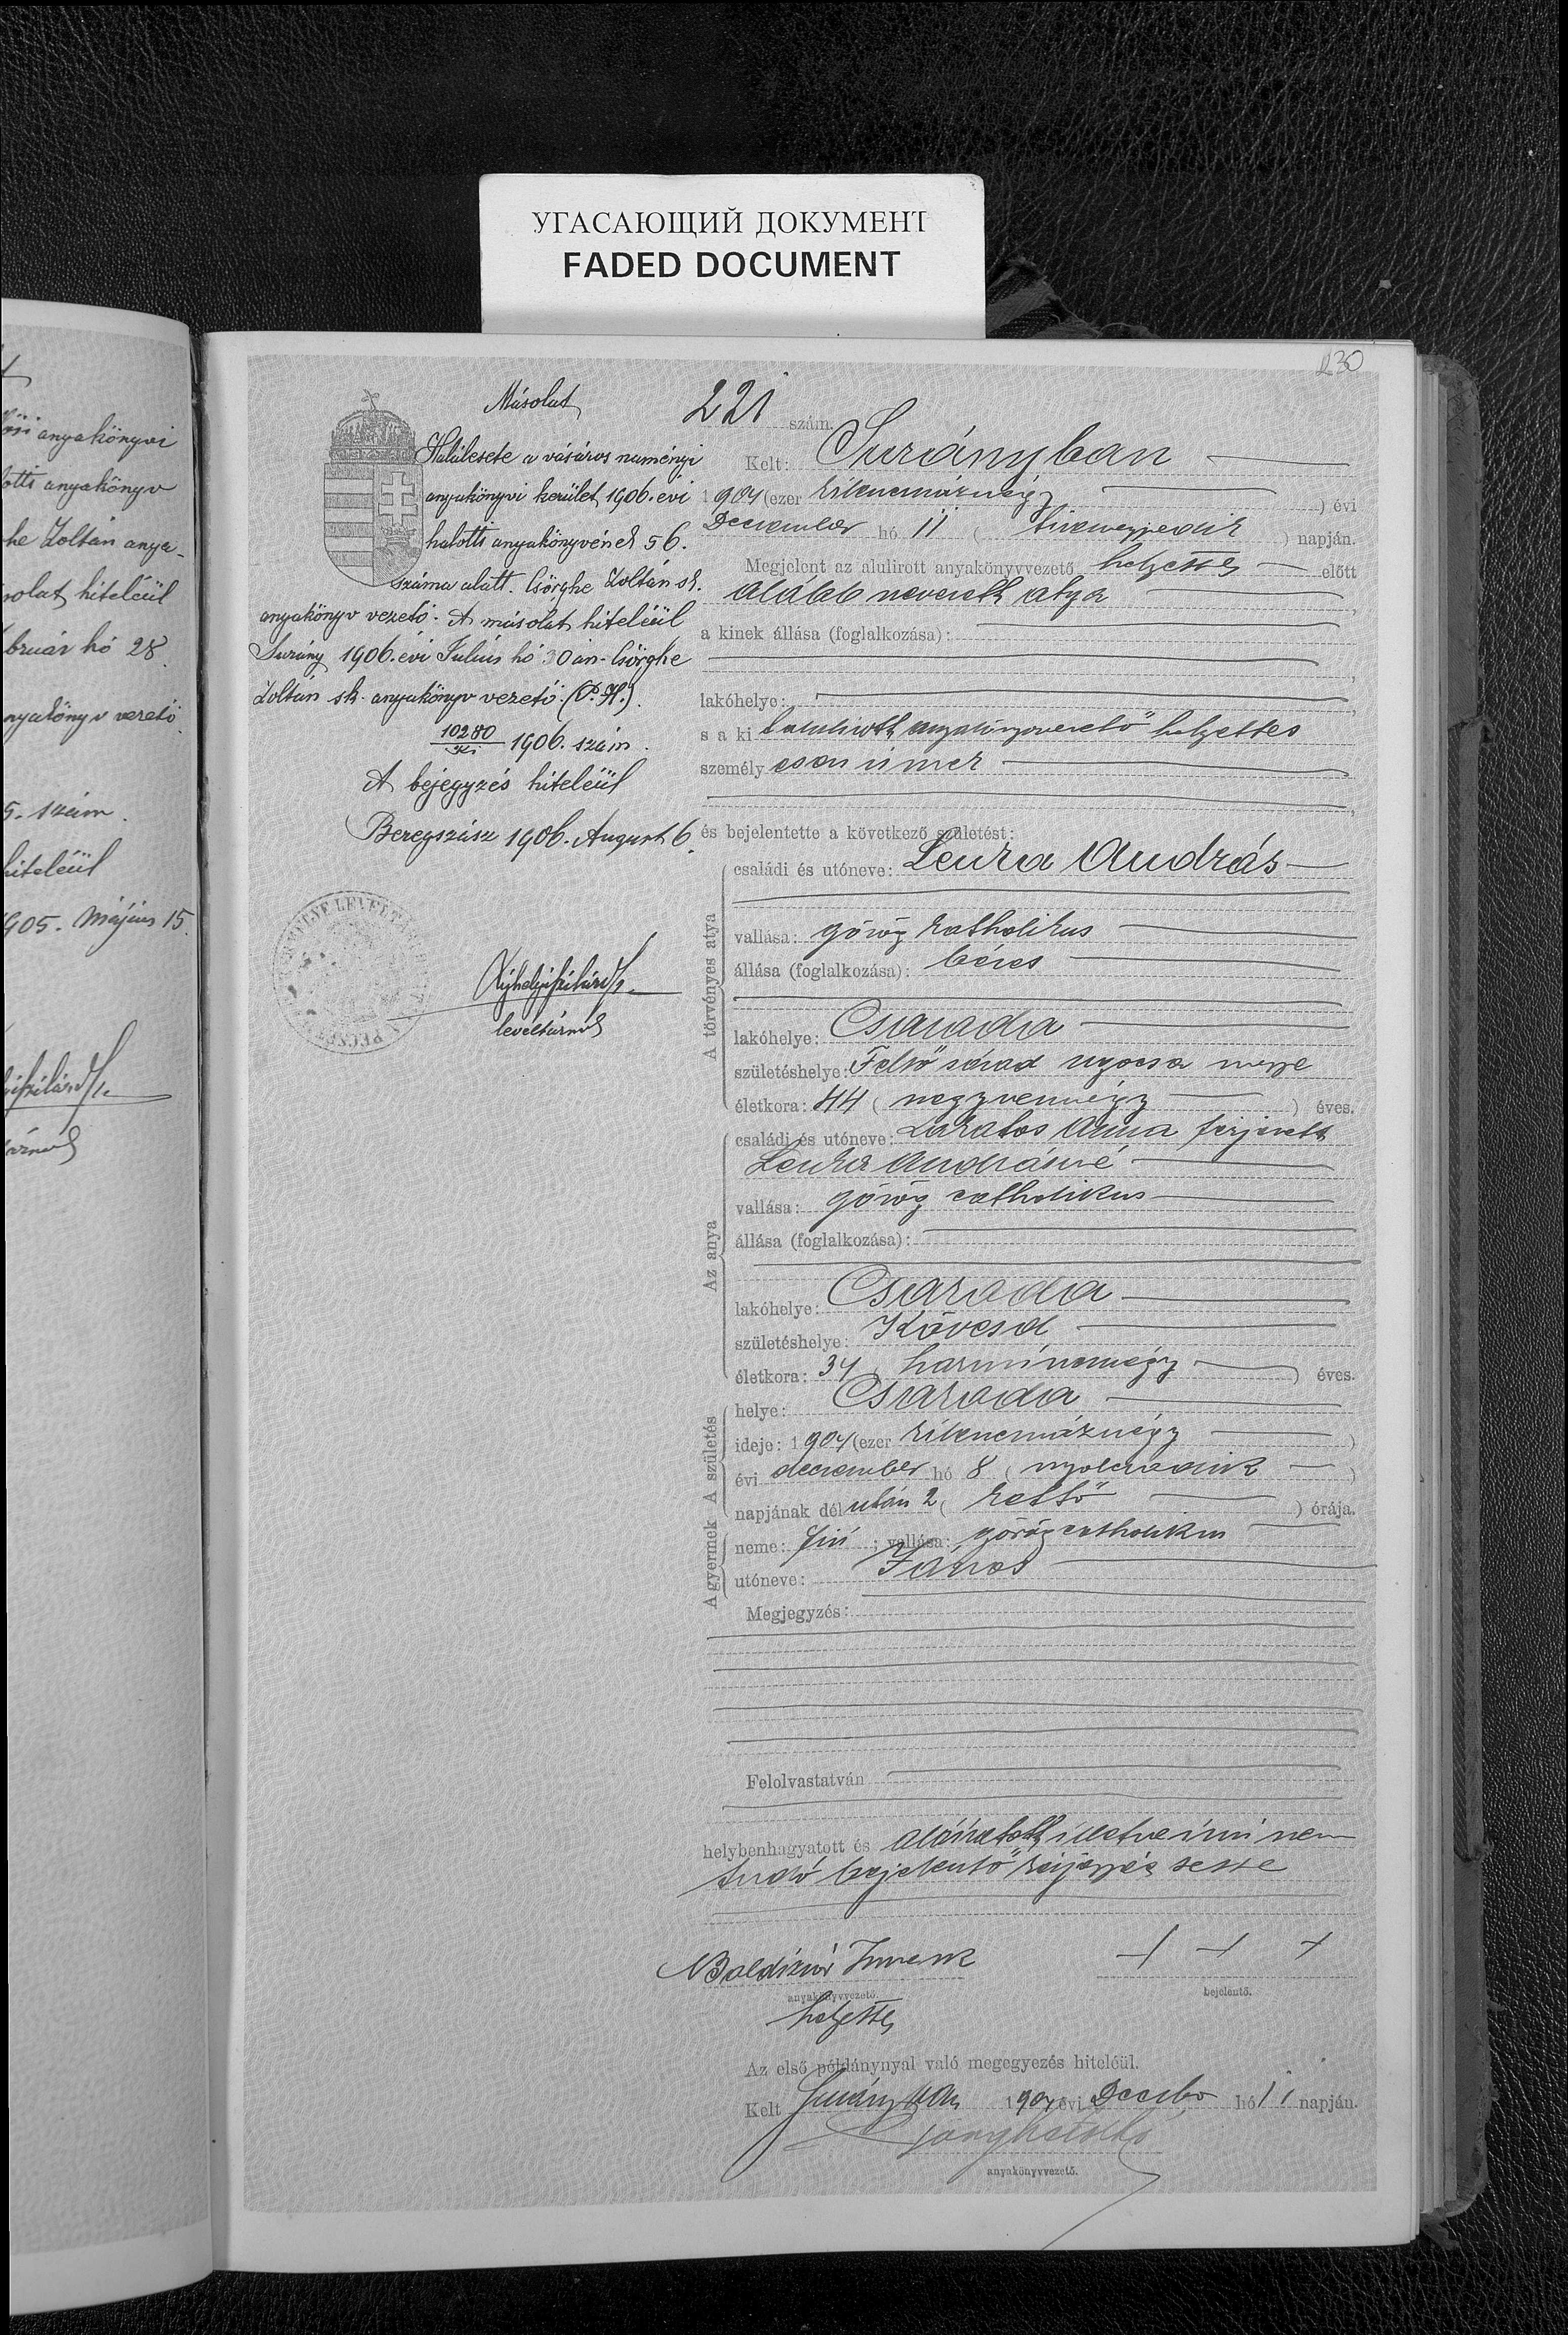 УГАСАЮЩИЙ ДОКУМЕНТ
FADED DOCUMENT
230
anyakönyvi
otti anyakönyv
he Zoltán anya-
solat hiteléül
bruár hó 28
nyakönyv vezető
5. szám.
hiteléül
905. Május 15.
Másolat
Halálesete a vásáros naményi
anyakönyvi kerület 1906. évi
halotti anyakönyvének 56.
száma alatt. Csörghe Zoltán sk.
anyakönyv vezető. A másolat hiteléül
Surány 1906. évi Julius hó 30 án. Csörghe
Zoltán sk. anyakönyv vezető: (P. H.)
10280 1906. szám.
A bejegyzés hiteléül
Beregszász 1906. August 6.
levéltárnok
221 szám.
Kelt: Surányban
1904 (ezer kilenczáznégy ) évi
December hó 11 ( tizenegyedik ) napján.
Megjelent az alulirott anyakönyvvezető helyettes előtt
alább nevezett atya
a kinek állása (foglalkozása):
lakóhelye:
s a kit alulirott anyakönyvvezető helyettes
személyesen ismer
és bejelentette a következő születést:
A törvényes atya
családi és utóneve: Leura András
vallása: görög katholikus
állása (foglalkozása): béres
lakóhelye: Csaroda
születéshelye: Felső sárad ugocsa megye
életkora: 44 ( negyvennégy ) éves.
Az anya
családi és utóneve: Lakatos Anna férjezett
Leura Andrásné
vallása: görög catholikus
állása (foglalkozása):
lakóhelye: Csaroda
születéshelye: Kövesd
életkora: 34 ( harmincnégy ) éves.
A gyermek A születés
helye: Csaroda
ideje: 1904 (ezer kilenczáznégy )
évi december hó 8 ( nyolczadik )
napjának dél után 2 ( kettő ) órája.
neme: fiú ; vallása: görög catholikus
utóneve: János
Megjegyzés:
Felolvastatván
helybenhagyatott és aláiratott illetve irni nem
tudó bejelentő kézjegyés tette
Baldizsár
anyakönyvvezető.
helyettes
+ + +
bejelentő.
Az első példánynyal való megegyezés hiteléül.
Kelt Surányban 1904 évi Decbr hó 11 napján.
anyakönyvvezető.